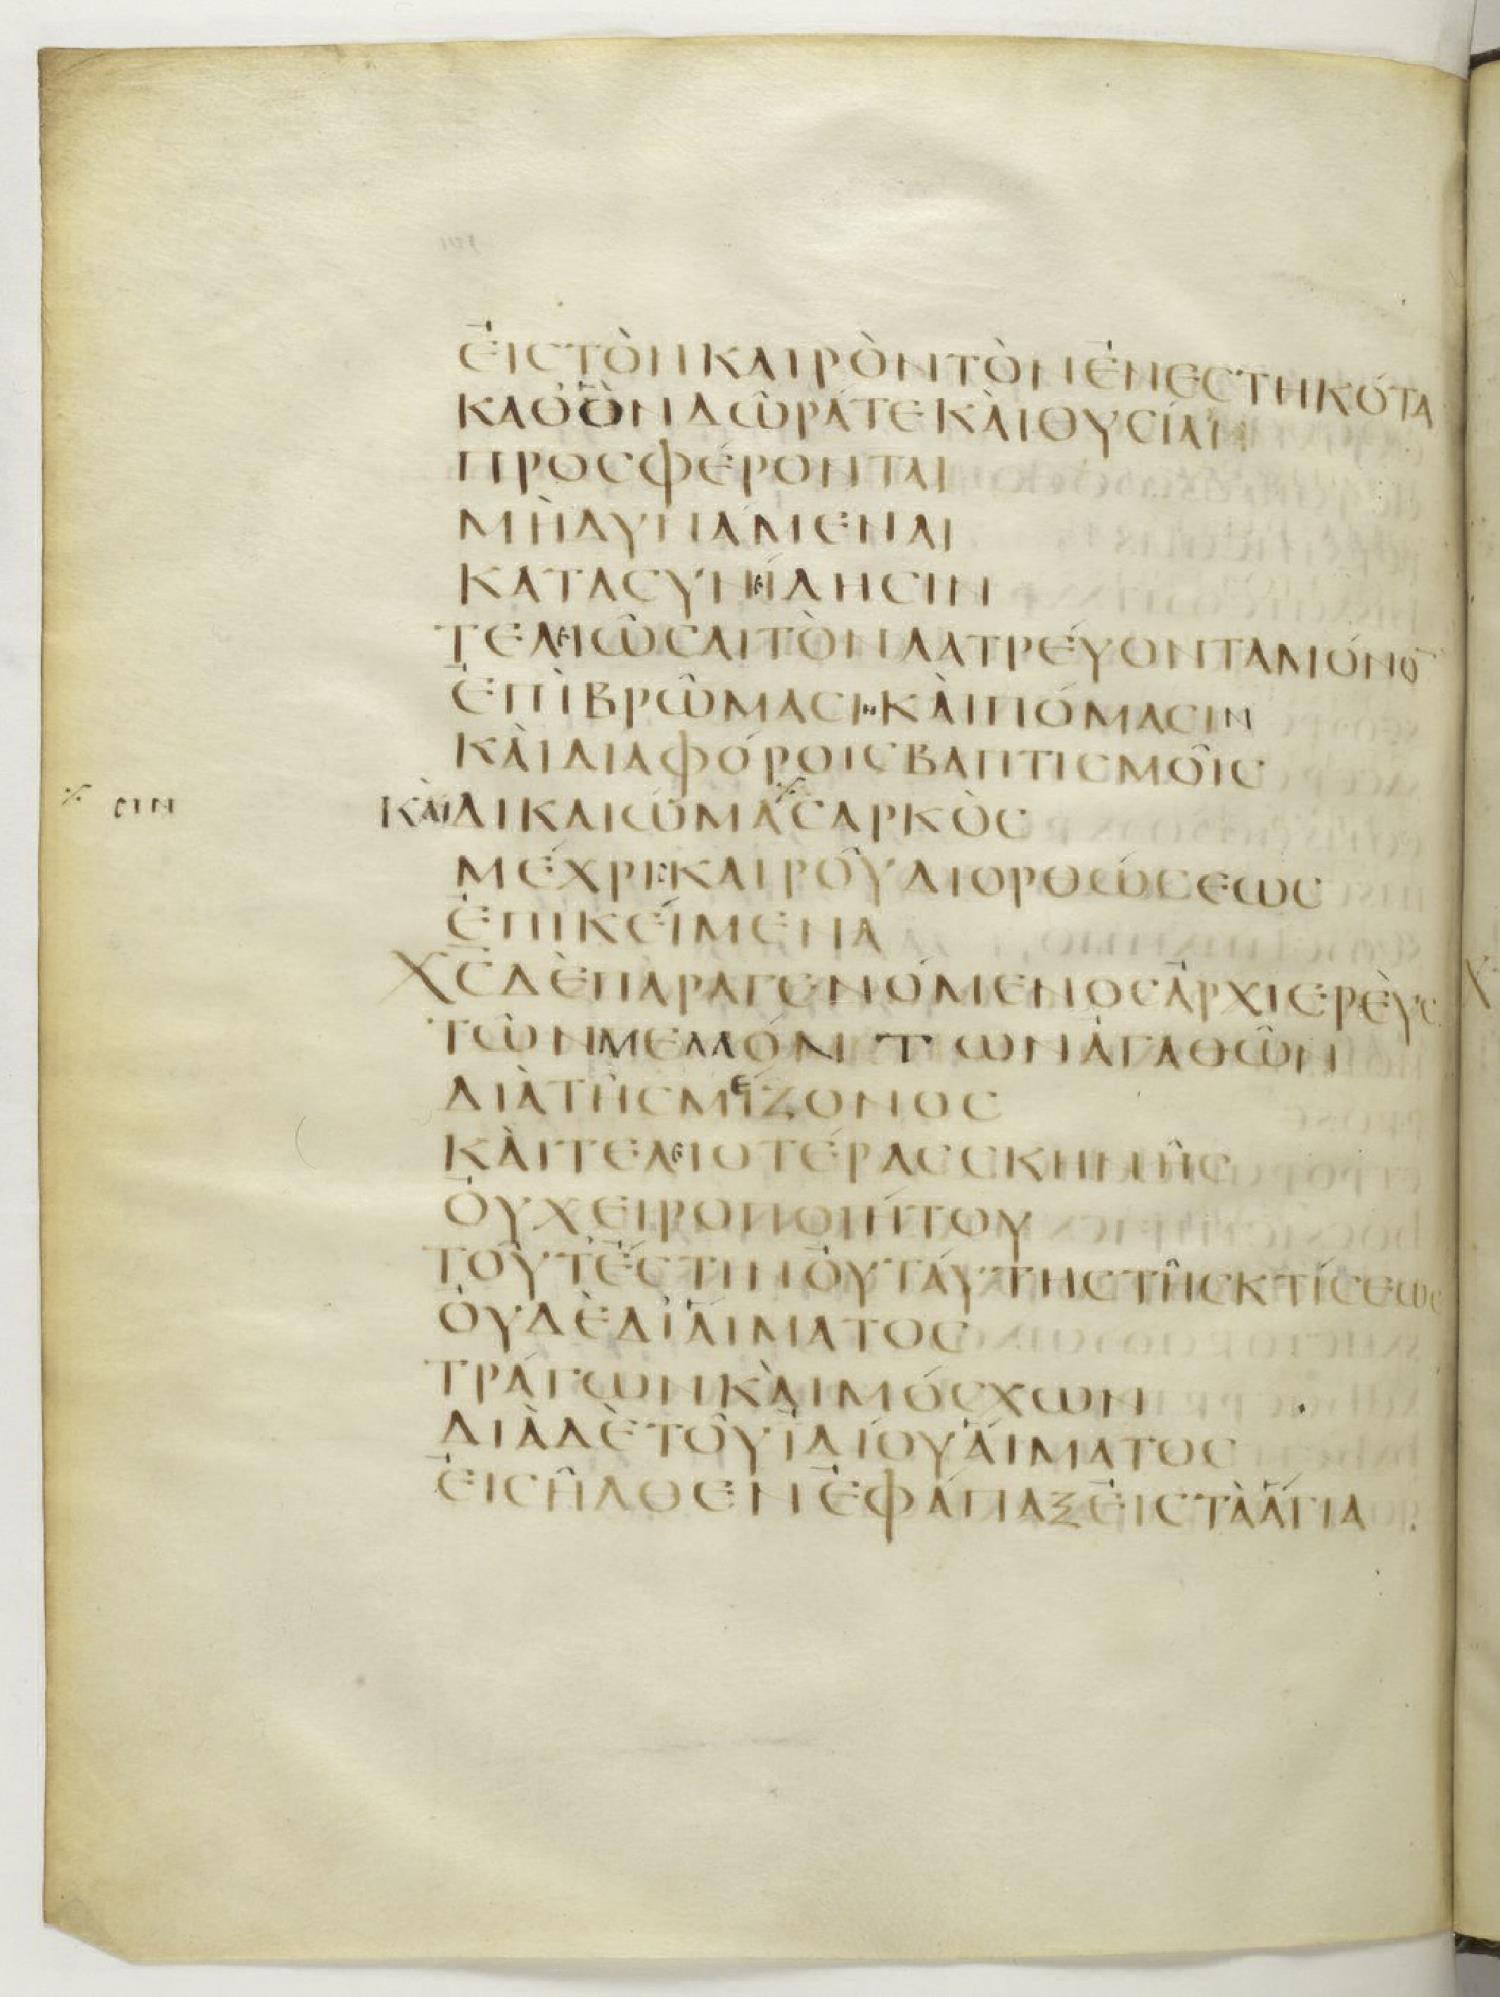 ἐιστὸνκαιρὸντὸνἐνεστηκότα
καθ᾽ὃνδῶράτεκὰιθυσίαι
προσφέρονται
μὴδυνάμεναι
κατασυνείδησιν
τελειῶσαιτὸνλατρέυονταμόνο̅
ἐπὶβρώμασινκὰιπόμασιν
κὰιδιαφόροισβαπτισμο͂ισ
κὰιδικαιώμα⁒σαρκὸσ
⁒ σιν
μέχρικαιρο͂υδιορθώσεωσ
ἐπικέιμενα
χ̅σ̅δὲπαραγενόμενοσἀρχιερὲυσ
τῶνμελλόντωνἀγαθῶν
διὰτῆσμείζονοσ
κὰιτελειοτέρασσκηνῆσ
ὀυχειροποιήτου
το͂υτ᾽ἔστινὀυτάυτησтῆσκτίσεωσ
ὀυδὲδι᾽ἅιματοσ
τράγωνκὰιμόσχων
διὰδὲτο͂υἰδίουἅιματοσ
ἐισῆλθενἐφάπαξἐιστὰἅγια